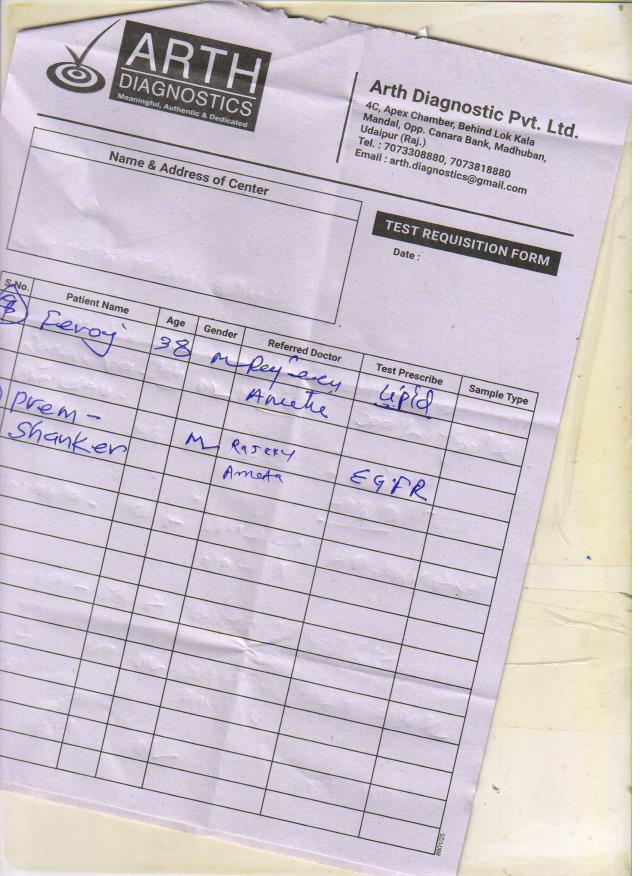 ARTH
DIAGNOSTICS
Meaningful, Authentic & Dedicated
Arth Diagnostic Pvt. Ltd.
4C, Apex Chamber, Behind Lok Kala
Mandal, Opp. Canara Bank, Madhuban,
Udaipur (Raj.)
Tel. : 7073308880, 7073818880
Email : arth.diagnostics@gmail.com
Name & Address of Center
TEST REQUISITION FORM
Date :
S.No. Patient Name Age Gender Referred Doctor Test Prescribe Sample Type
38 M Lipid
Prem-
Shanker M Rajeev
Ameta EGFR